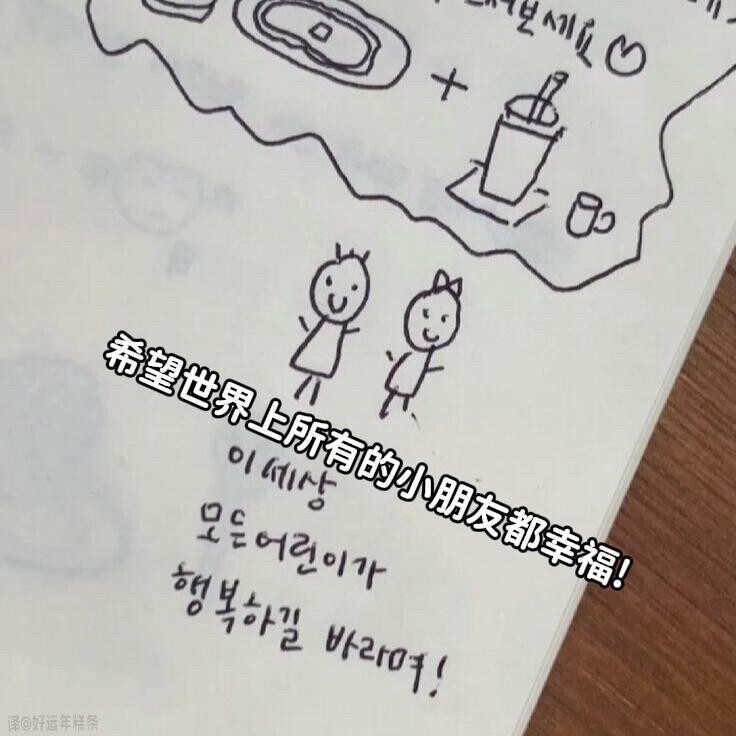 보세요♡
希望世界上所有的小朋友都幸福!
이 세상
모든 어린이가
행복하길 바라며!
译@好运年糕条